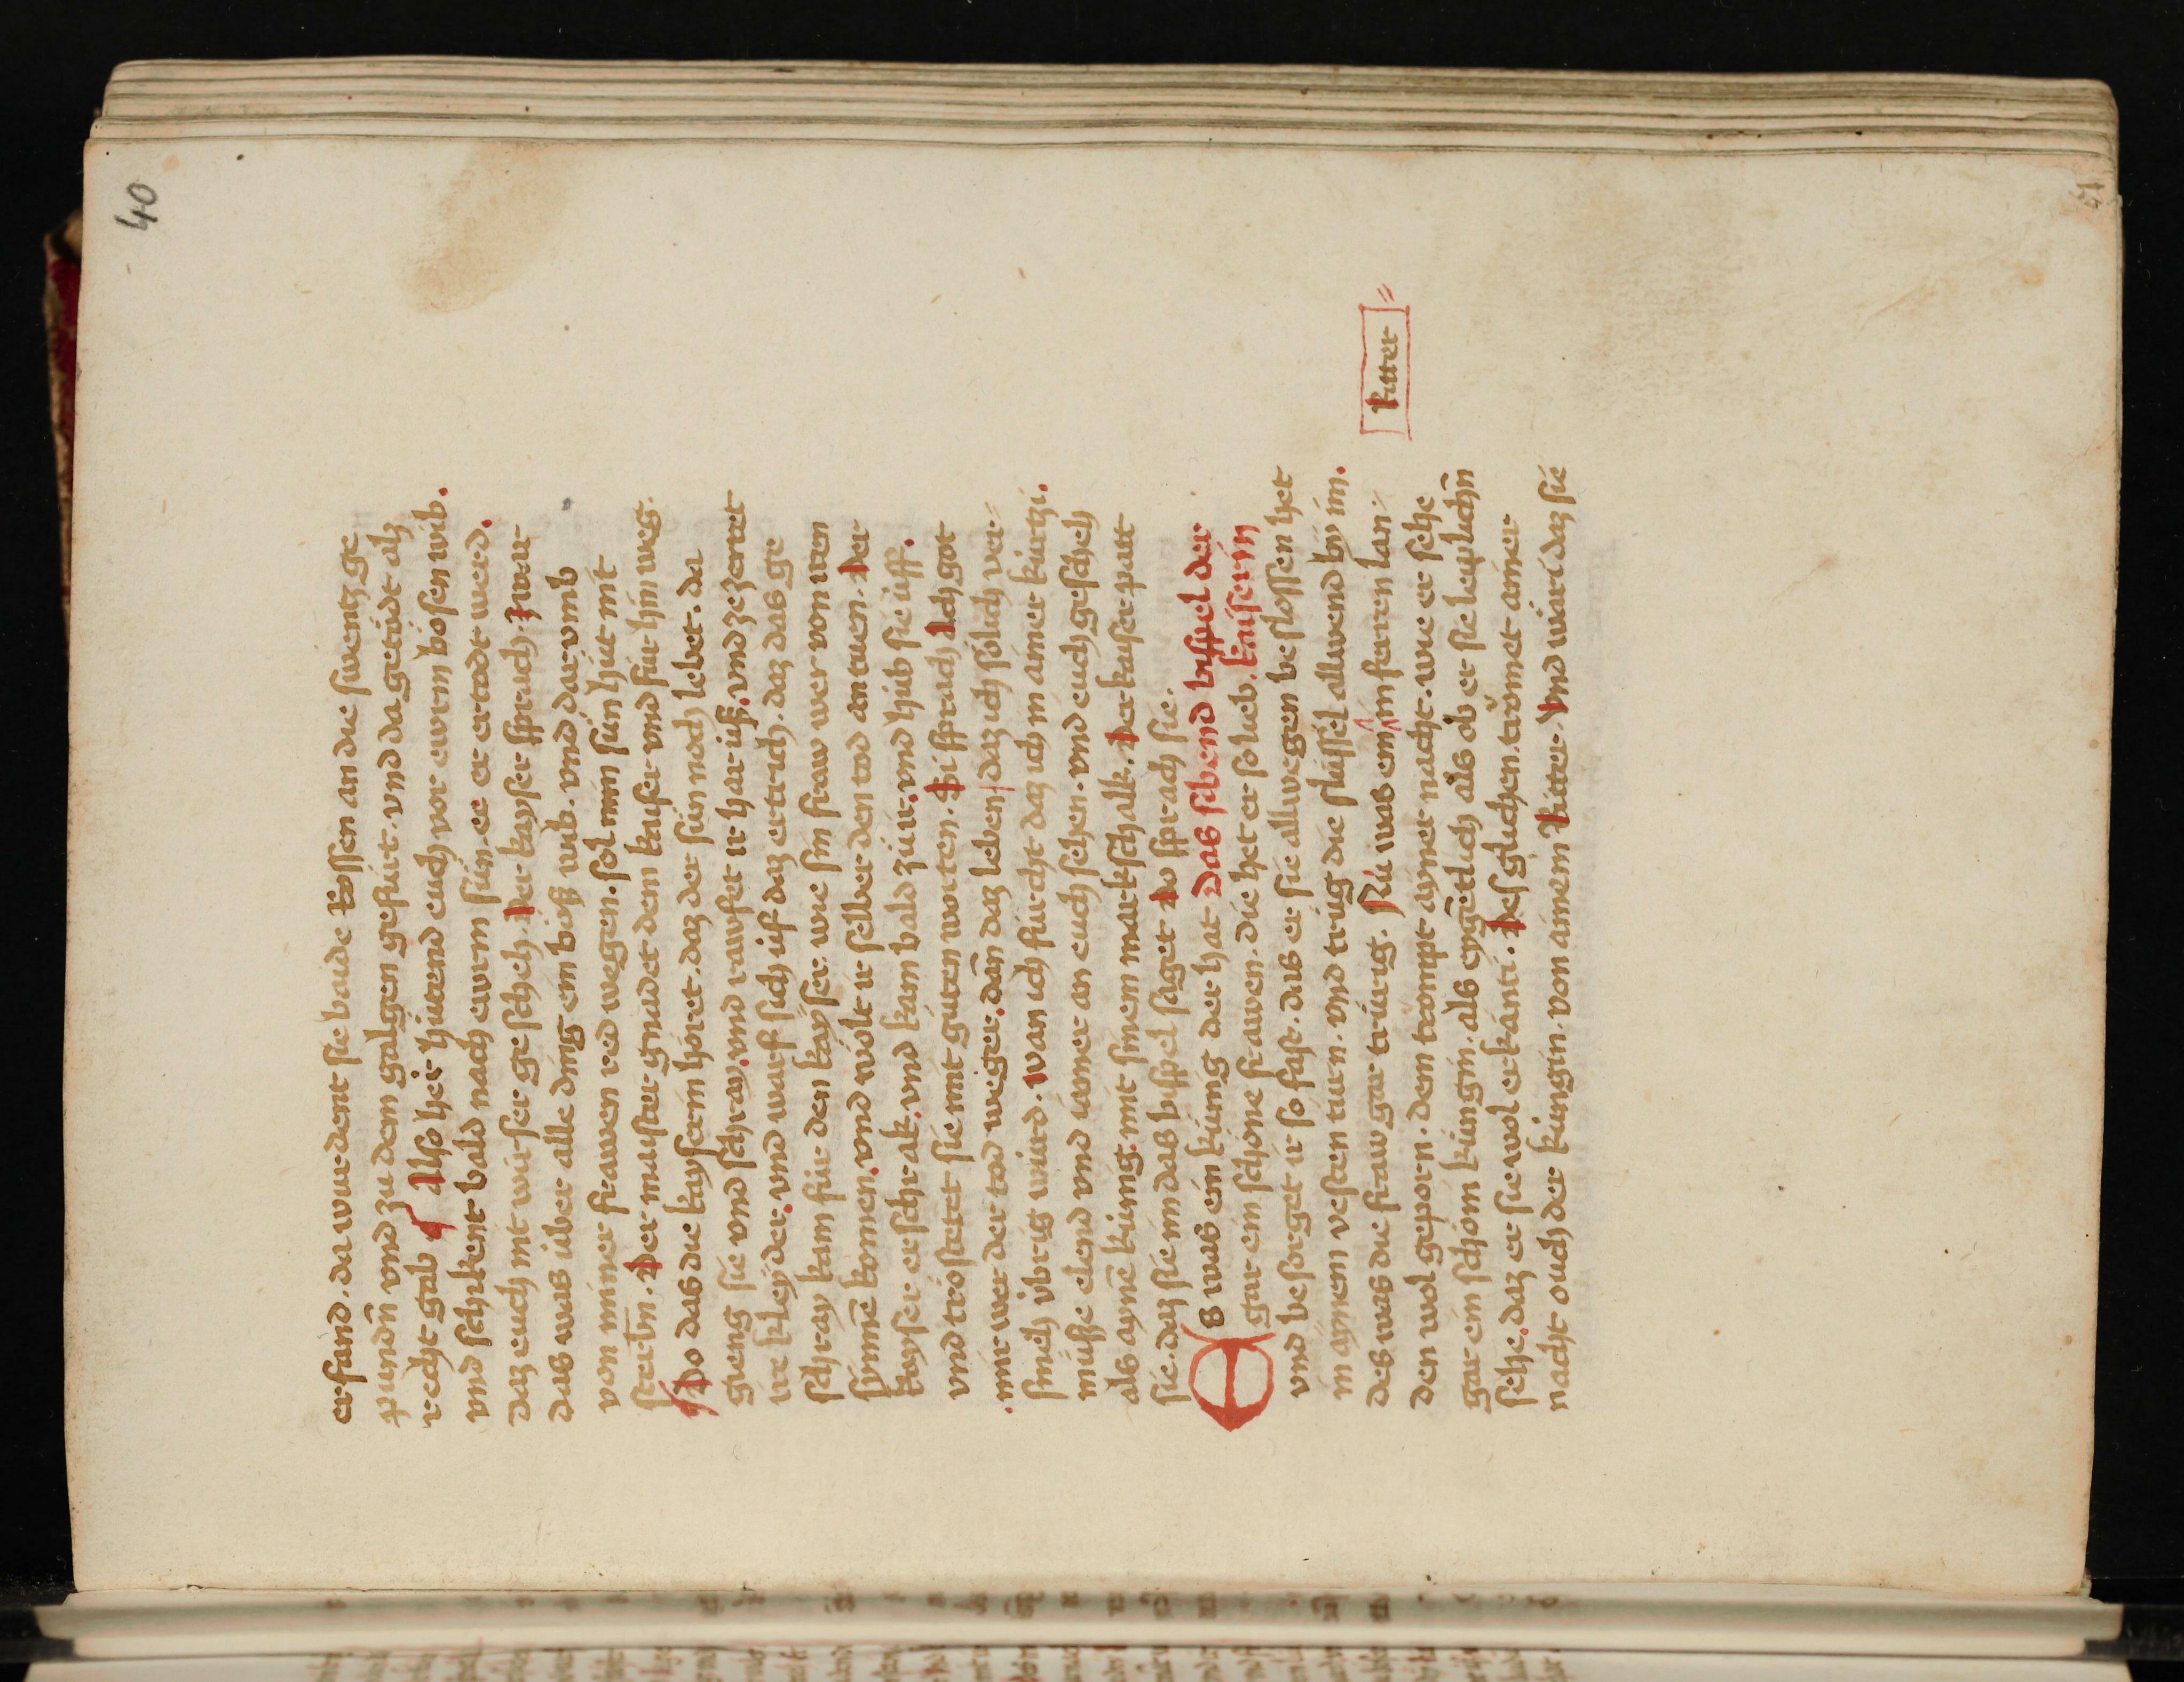 40
erfand. da wurdent sie baide vossen an die swentz ge
pundn̄ vnd zu dem galgen gefürt. vnd da getödt alz
recht gab ¶ Also her hüttend euch vor ewrm bösen wib.
vnd schikent bald nach ewrm sün. ee er ertodt werd.
daz euch nit wirser geschech. Der kayser sprach. Zwar
das was über alle ding ein böß wib. vnd dar vmb
von miner frawen red wegen. sol min sün hüt nit
sterbn̄. Der maister gnadet dem kaiser vnd für hin weg.
¶ Do das die kayserin höret. daz der sün noch lebet. da
gieng sie vnd schray. vnd rawfet ir har uß. vnd zezerret
ire kleyder. vnd warf sich uf daz ertrich. daz das ge
schray kam für den kayser. wie sin fraw wer von iren
synnē komen. vnd wölt ir selber den tod an tuen. Der
kayser erschrak. vnd kam bald zü ir. vnd hüb sie uff.
vnd tröstetet sie mit guten worten. Si sprach Ach got
mir wer der tod weger. dan̄ daz leben/ daz ich sölich ver-
smech übrig würd. wan ich fürcht daz ich in ainer kürtzi.
müsse elend vnd iamer an euch sehen. vnd euch geschech
als aynē küng. mit sinem markschalk. Der kaiser patt
sie. daz sie im das byspel saget Do sprach sie.
Es was ein küng der hat Das sibend byspel der
gar ein schöne frawen. die het er so lieb. kaiserin
vnd besorget ir so fast. das er sie allwegen beslossen het
in aynem vesten turn. vnd trüg die slüssel allwend by im.
des was die fraw gar trürig. Nü was ein/ in ferren lan-
Ritter
den wol geporn. dem trompt ayner nacht. wie er sehe
gar ein schöni küngin. als eygētlich als ob er sie leyplichn̄
sehe. daz er sie wol erkanti. Desglichen trömet ainer
nacht ouch der küngin. von ainem Ritter. Vnd wari daz sie